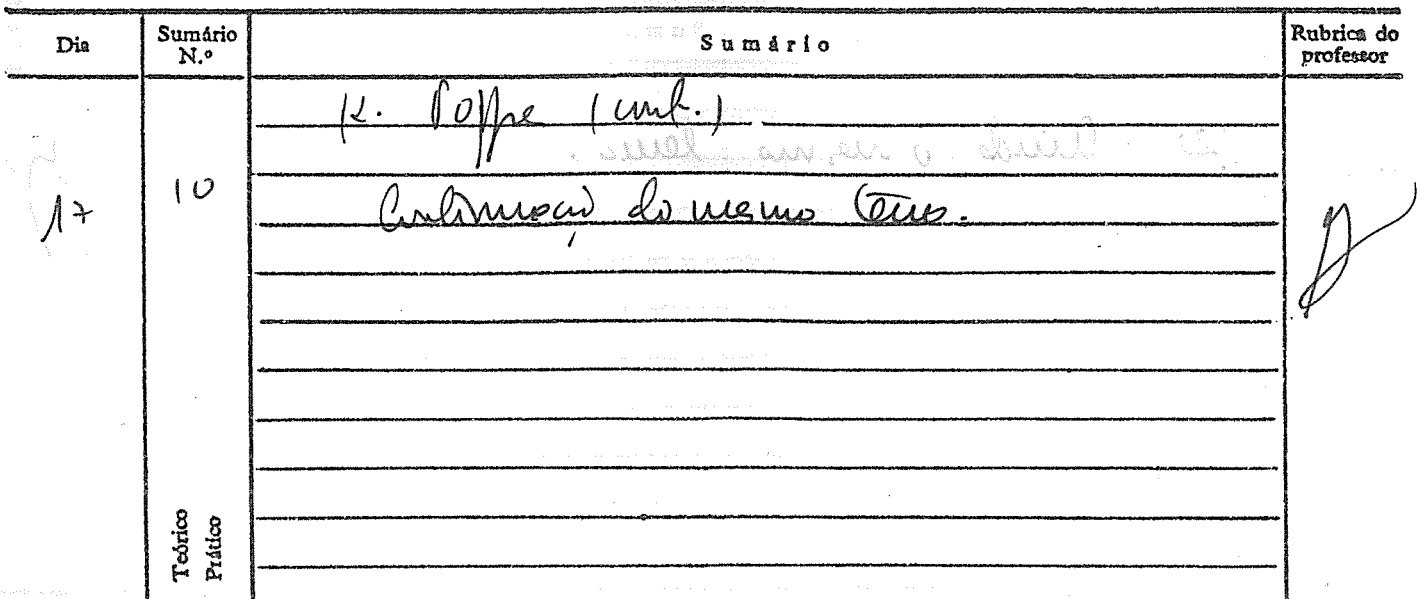 Dia
Sumário N.º
Sumário
Rubrica do professor
K. Popper (cont.)
17
10
Continuação do mesmo tema.
Teórico
Prático